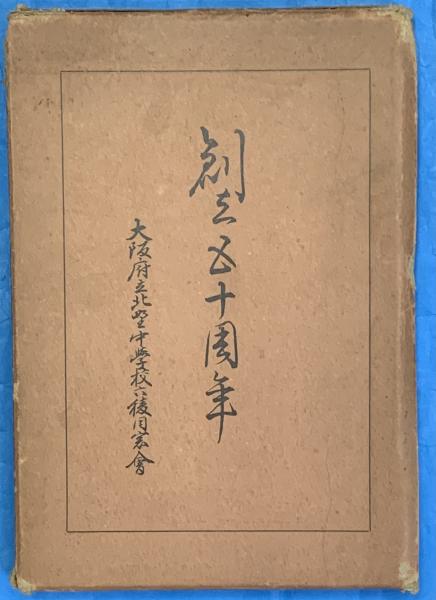 創立五十周年
大阪府立北野中學校六稜同窓會